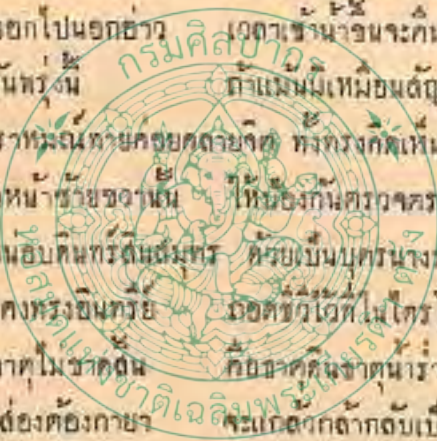 ออกไปนอกอ่าว เวลาเช้าน้ำขึ้นจะคืน
ันพรุ่งนี้ ถ้าแม้นมีเหมือนสัญ
ราหมณ์ทายค่อยคลายจิต ทั้งทรงคิดเห็น
หน้าซ้ายขวานั้น ให้ป้องกันตรวจตร
นอบดินทร์สินสมุทร ด้วยเป็นบุตรนาง
คงทรงอินทรีย์ ถอดชีวิตไว้ที่ใน
าตุไม่ขาดสิ้น คือธาตุดินธาตุน้ำ
ส่องต้องกายา จะแกล้วกล้ากลับเป็
กรมศิลปากร
หอสมุดแห่งชาติเฉลิมพระเกียรติ ตรัง